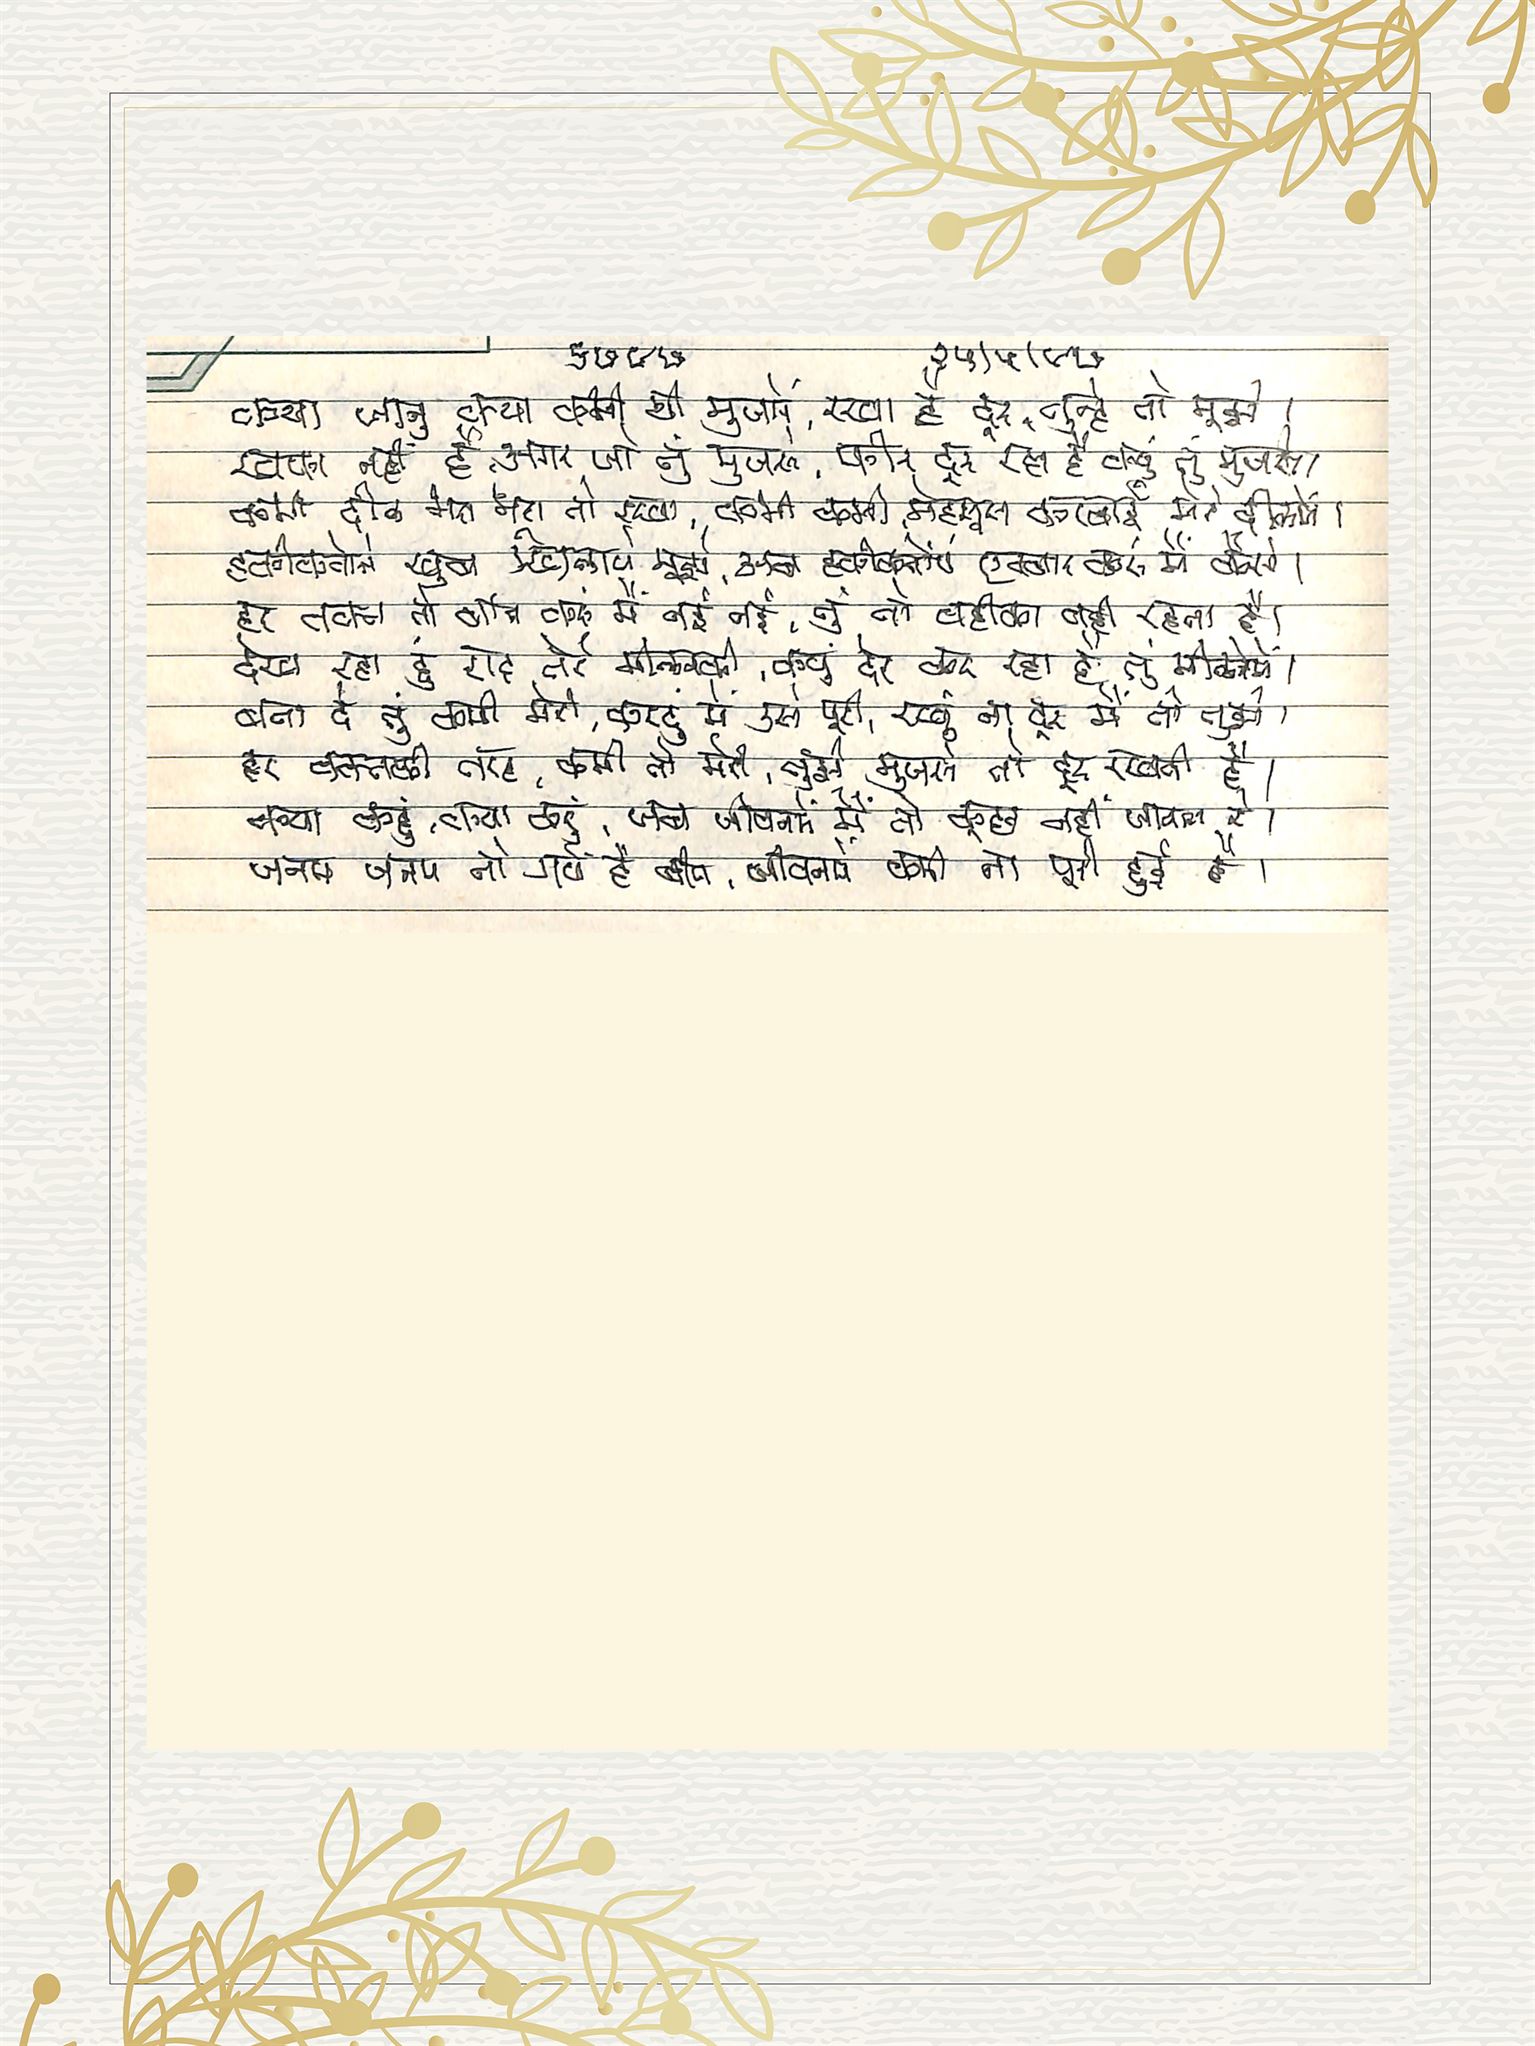 ५७९७ २५/५/९७
क्या जानु क्या कमी थी मुजमें, रखा है दूर, तुन्हे तो मुझे ।
खफा नहीं है, अगर जो तुं मुजसे, फीर दूर रहा है क्युं तुं मुजसे।
कभी दील मेरा तो कभी कभी महसूस करवाई मेरे दीलमें ।
हकीकतोंने खुब मुझे, अब हकीकतोंपे करुं मैं कैसे ।
हर वक्त तो करुं मैं नई नई, तुं तो वहीका वहीं रहता है।
देख रहा हुं राह तेरे मीलनकी, क्युं देर कर रहा है तुं मीलनेमें।
बता दे तुं कमी मेरी, करदुं मैं उसे पूरी, रखुं ना दूर मैं तो तुझे ।
हर वक्तकी तरह, कमी तो मेरी, तुझे, मुजसे तो दूर रखती है ।
क्या कहुं, क्या करुं, जब जीवनमें मैं तो कुछ नहीं
जनम जनम तो गये है बीत, जीवनमें कमी ना पूरी हुई है ।